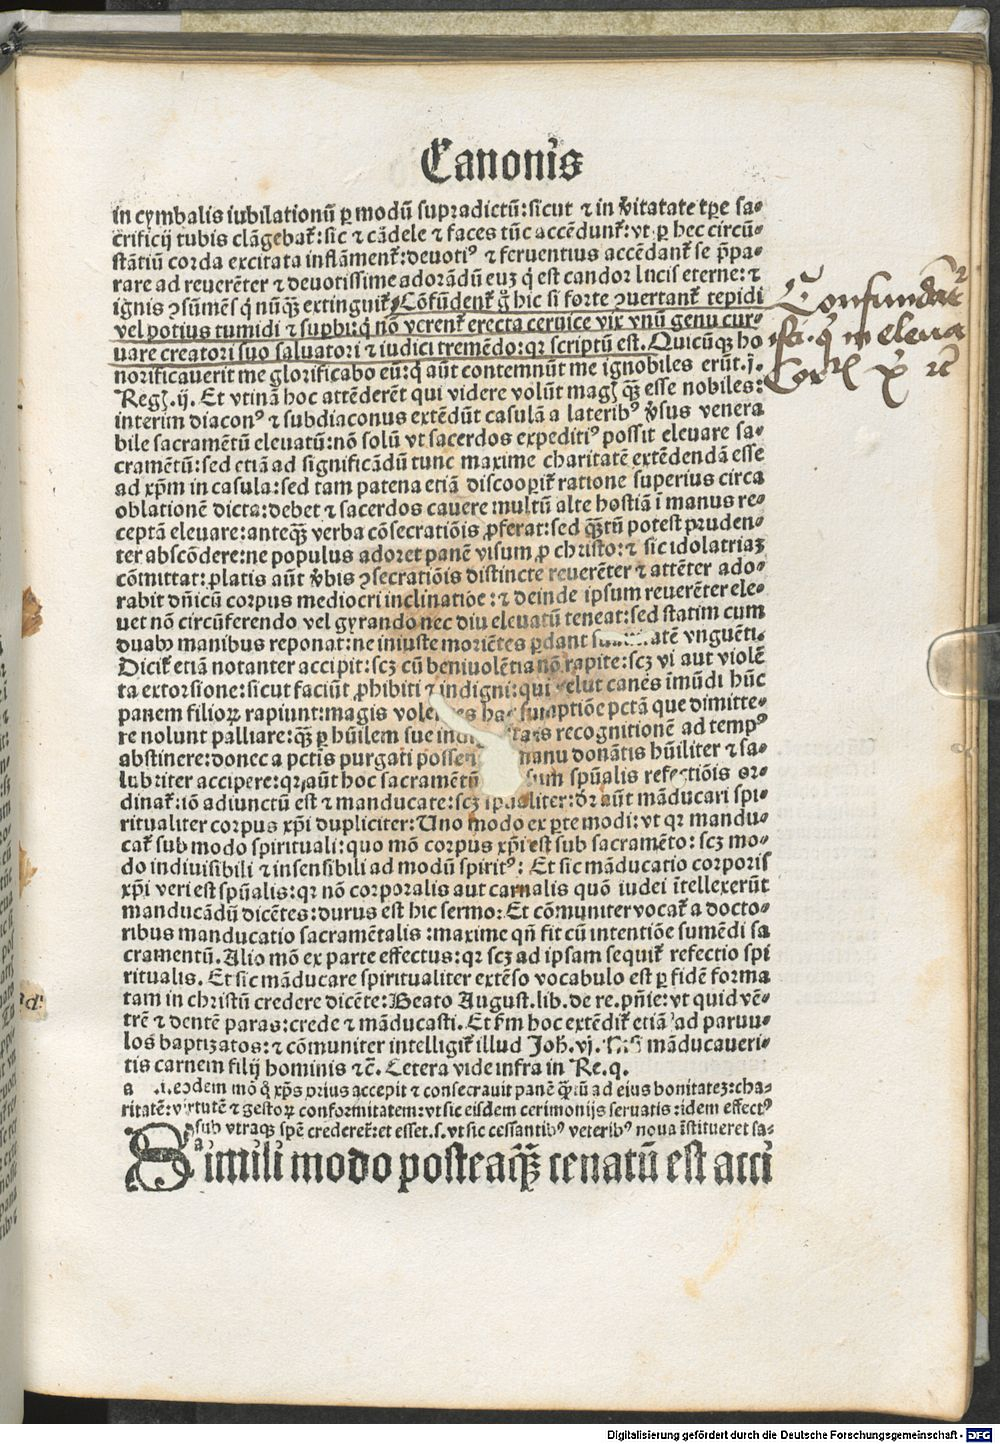 Canonis
in cymbalis iubilationū ꝑ modū supradictū: sicut ⁊ in v̾itatate tꝑe sa⸗
crificij tubis clāgebat᷑: sic ⁊ cādele ⁊ faces tūc accēdunt᷑: vt ꝑ hec circū⸗
stātiū corda excitata inflāment᷑: deuotiꝰ ⁊ feruentius accēdant᷑ se p̄pa⸗
rare ad reuerēter ⁊ deuotissime adorādū euꝫ q̇ est candor lucis eterne: ⁊
ignis ꝯsūmēs q̇ nūqꝫ extinguit᷑. Cōfūdent᷑ g̊ hic si forte ꝯuertant᷑ tepidi
vel potius tumidi ⁊ suꝑbi: q̇ nō verent᷑ erecta ceruice vix vnū genu cur⸗
uare creatori suo saluatori ⁊ iudici tremēdo: qꝛ scriptū est. Quicūqꝫ ho
norificauerit me glorificabo eū: q̇ aūt contemnūt me ignobiles erūt. j.
Regꝝ. ij. Et vtinā hoc attēderēt qui videre volūt magꝭ qꝫ esse nobiles:
interim diaconꝰ ⁊ subdiaconus extēdūt casulā a lateribꝰ v̾sus venera
bile sacramētū eleuatū: nō solū vt sacerdos expeditiꝰ possit eleuare sa⸗
cramētū: sed etiā ad significādū tunc maxime charitatē extēdendā esse
ad xp̄m in casula: sed tam patena etiā discooꝑit᷑ ratione superius circa
oblationē dicta: debet ⁊ sacerdos cauere multū alte hostiā ī manus re⸗
ceptā eleuare: anteqꝫ verba cōsecratiōis ꝓferat: sed qꝫtū potest pruden⸗
ter abscōdere: ne populus adoret panē visum ꝓ christo: ⁊ sic idolatriaꝫ
cōmittat: ꝓlatis aūt v̾bis ꝯsecratiōis distincte reuerēter ⁊ attēter ado⸗
rabit dn̄icū corpus mediocri inclinatiōe: ⁊ deinde ipsum reuerēter ele⸗
uet nō circūferendo vel gyrando nec diu eleuatū teneat: sed statim cum
duabꝰ manibus reponat: ne iniuste moriētes ꝑdant atē vnguēti.
Dicit᷑ etiā notanter accipit: scꝫ cū beniuolētia nō rapite: scꝫ vi aut violē
ta extorsione: sicut faciūt ꝓhibiti ⁊ indigni: qui velut canes īmūdi hūc
panem filioꝝ rapiunt: magis volentes hac sumptiōe pctā que dimitte⸗
re nolunt palliare: qꝫ ꝑ hūilem sue indignitatis recognitionē ad tempꝰ
abstinere: donec a pctis purgati possent manu donātis hūiliter ⁊ sa⸗
lubriter accipere: qꝛ aūt hoc sacramētū sum spūalis refectiōis or⸗
dinat᷑: iō adiunctū est ⁊ manducate: scꝫ spūaliter: dr̄ aūt māducari spi⸗
ritualiter corpus xp̄i dupliciter: Uno modo ex ꝑte modi: vt qꝛ mandu⸗
cat᷑ sub modo spirituali: quo mō corpus xp̄i est sub sacramēto: scꝫ mo⸗
do indiuisibili ⁊ insensibili ad modū spiritꝰ: Et sic māducatio corporis
xp̄i veri est spūalis: qꝛ nō corporalis aut carnalis quō iudei ītellexerūt
manducādū dicētes: durus est hic sermo: Et cōmuniter vocat᷑ a docto⸗
ribus manducatio sacramētalis: maxime qn̄ fit cū intentiōe sumēdi sa
cramentū. Alio mō ex parte effectus: qꝛ scꝫ ad ipsam sequit᷑ refectio spi
ritualis. Et sic māducare spiritualiter extēso vocabulo est ꝑ fidē forma
tam in christū credere dicēte: Beato August. lib. de re. pn̄ie: vt quid vē⸗
trē ⁊ dentē paras: crede ⁊ māducasti. Et ẜm hoc extēdit᷑ etiā ad paruu⸗
los baptizatos: ⁊ cōmuniter intelligit᷑ illud Joh̄. vj. Nisi māducaueri⸗
tis carnem filij hominis ⁊c̄. Cetera vide infra in Re. q.
a .i. eodem mō q̊ xp̄s prius accepit ⁊ consecrauit panē qꝫtū ad eius bonitateꝫ: cha⸗
ritatē: virtutē ⁊ gestoꝝ conformitatem: vt sic eisdem cerimonijs seruatis: idem effectꝰ
sub vtraqꝫ spē crederet᷑: et esset. s. vt sic cessantibꝰ veteribꝰ noua īstitueret sa⸗
a
Simili modo posteaqꝫ cenatū est acci